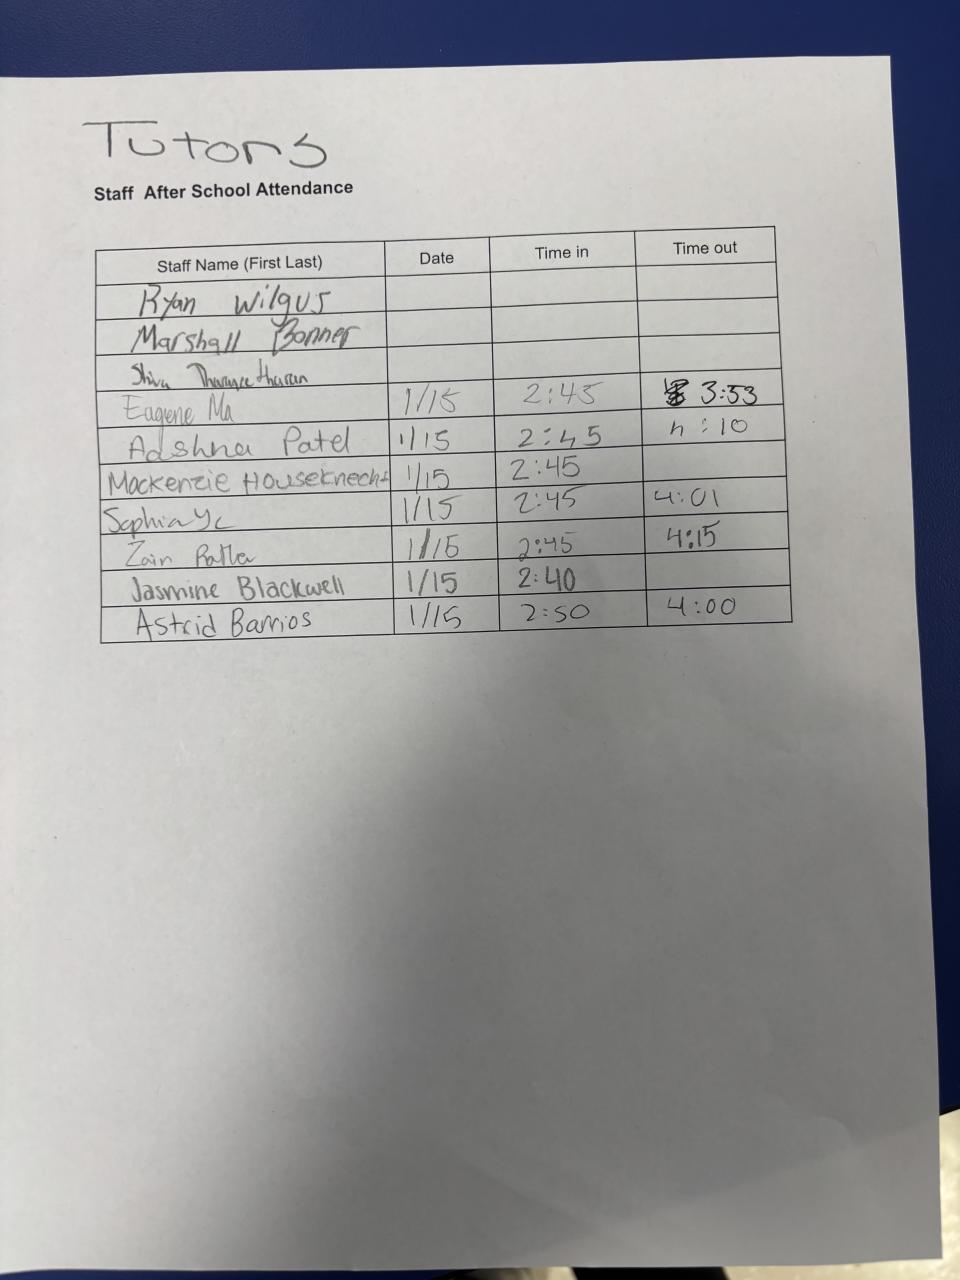 Tutors
Staff After School Attendance
Staff Name (First Last) Date Time in Time out
Ryan Wilgus
Marshall Bonner
Shiva
Eugene Ma 1/15 2:45 3:53
Adshna Patel 1/15 2:45 4:10
Mackenzie Houseknecht 1/15 2:45
Sophia Ye 1/15 2:45 4:01
Zain 1/15 2:45 4:15
Jasmine Blackwell 1/15 2:40
Astrid Barrios 1/15 2:50 4:00